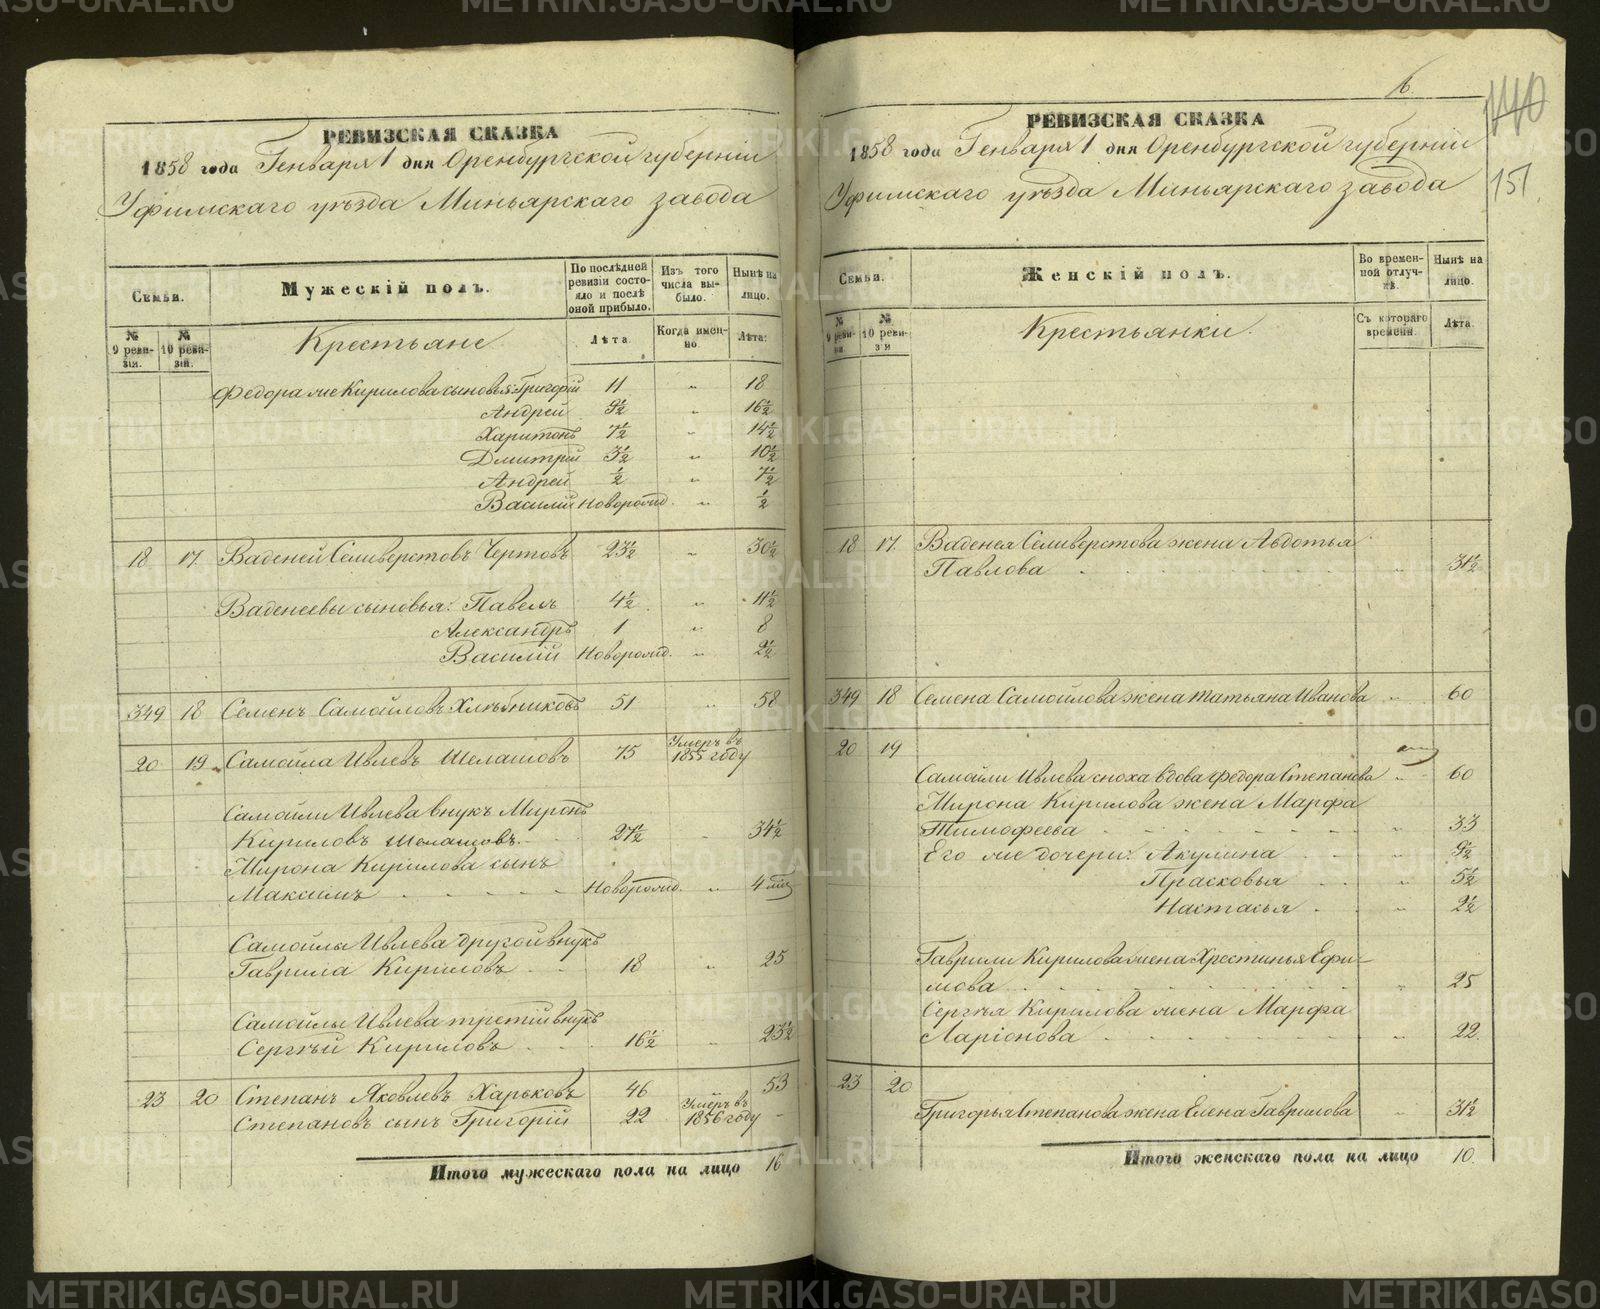 РЕВИЗСКАЯ СКАЗКА
1858 года Генваря 1 дня Оренбургской губерніи
Уфимскаго уѣзда Миньярскаго завода
Семьи.
Мужескій полъ.
По послѣдней ревизіи состояло и послѣ оной прибыло.
Изъ того числа выбыло.
Нынѣ на лицо.
№ 9 ревизіи.
№ 10 ревизіи.
Крестьяне
Лѣта.
Когда именно.
Лѣта.
Федора же Кирилова сыновья: Григорій 11 " 18
Андрей 9½ " 16½
Харитонъ 7½ " 14½
Дмитрій 3½ " 10½
Андрей ½ " 7½
Василій Новорожд. " ½
18 17. Ваденей Селиверстовъ Чертовъ 23½ " 30½
Ваденеевы сыновья: Павелъ 4½ " 11½
Александръ 1 " 8
Василій Новорожд. " 2½
349 18 Семенъ Самойловъ Хлѣбниковъ 51 " 58
20 19 Самойла Ивлевъ Шелашовъ 75 Умеръ въ 1855 году
Самойлы Ивлева внукъ Миронъ
Кириловъ Шелашовъ 27½ " 34½
Мирона Кирилова сынъ
Максимъ Новорожд. " 4 мѣс
Самойлы Ивлева другой внукъ
Гаврила Кириловъ 18 " 25
Самойлы Ивлева третій внукъ
Сергѣй Кириловъ 16½ " 23½
23 20 Степанъ Яковлевъ Харьковъ 46 53
Степановъ сынъ Григорій 22 Умеръ въ 1856 году -
Итого мужескаго пола на лицо 16
6
140
151
РЕВИЗСКАЯ СКАЗКА
1858 года Генваря 1 дня Оренбургской губерніи
Уфимскаго уѣзда Миньярскаго завода
Семьи.
Женскій полъ.
Во временной отлучкѣ.
Нынѣ на лицо.
№ 9 ревизіи.
№ 10 ревизіи
Крестьянки.
Съ котораго времени.
Лѣта.
18 17. Ваденея Селиверстова жена Авдотья
Павлова " 31½
349 18 Семена Самойлова жена Татьяна Иванова " 60
20 19
Самойлы Ивлева сноха вдова Федора Степанова " 60
Мирона Кирилова жена Марфа
Тимофеева " 33
Его же дочери: Акулина " 9½
Прасковья " 5½
Настасья " 2½
Гаврилы Кирилова жена Хрестинья Ефи-
мова " 25
Сергѣя Кирилова жена Марфа
Ларіонова " 22.
23 20
Григорья Степанова жена Елена Гаврилова " 31½
Итого женскаго пола на лицо 10.
METRIKI.GASO-URAL.RU